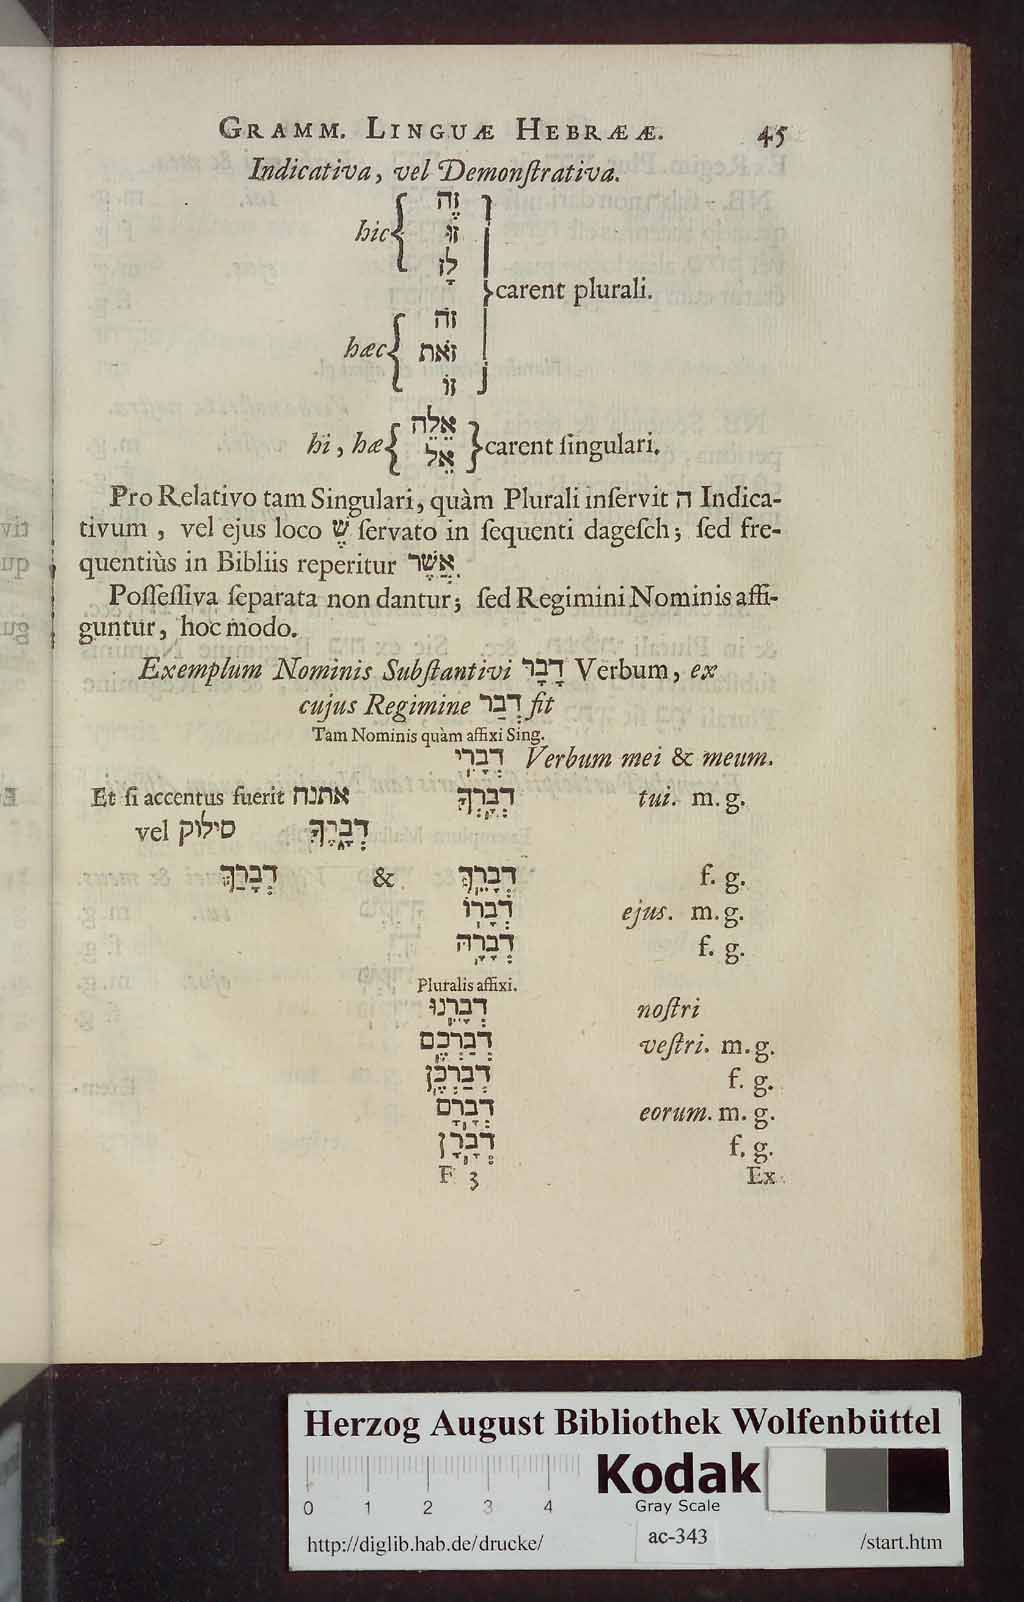 GRAMM. LINGUÆ HEBRÆÆ. 45
Indicativa, vel Demonſtrativa.
זֶה
hic זוּ
לָז
carent plurali.
זֹה
hæc זֹאת
זוֹ
אֵלֶּה
hi, hæ carent ſingulari.
אֵל
Pro Relativo tam Singulari, quàm Plurali inſervit ה Indica-
tivum, vel ejus loco שֶׁ ſervato in ſequenti dageſch; ſed fre-
quentiùs in Bibliis reperitur אֲשֶׁר.
Poſſeſſiva ſeparata non dantur; ſed Regimini Nominis affi-
guntur, hoc modo.
Exemplum Nominis Subſtantivi דָבָר Verbum, ex
cujus Regimine דְבַר fit
Tam Nominis quàm affixi Sing.
דְבָרִי Verbum mei & meum.
Et ſi accentus fuerit אתנח דְבָרְךָ tui. m. g.
vel סילוק דְבָרֶךָ
דְבָרַךְ & דְבָרֵךְ f. g.
דְבָרוֹ ejus. m. g.
דְבָרָהּ f. g.
Pluralis affixi.
דְבָרֵנוּ noſtri
דְבַרְכֶם veſtri. m. g.
דְבַרְכֶן f. g.
דְבָרָם eorum. m. g.
דְבָרָן f. g.
F 3 Ex
Herzog August Bibliothek Wolfenbüttel
Kodak
0 1 2 3 4 Gray Scale
http://diglib.hab.de/drucke/ ac-343 /start.htm